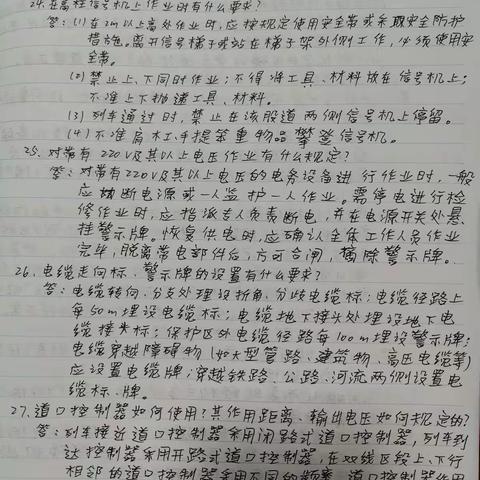 24. 在高柱信号机上作业时有什么要求?
答: (1) 在2m以上高处作业时,应按规定使用安全带或采取安全防护
措施,离开信号梯子或站在梯子架外侧工作,必须使用安
全带。
(2) 禁止上、下同时作业;不得将工具、材料放在信号机上;
不准上下抛递工具、材料。
(3) 列车通过时,禁止在该股道两侧信号机上停留。
(4) 不准肩扛、手提笨重物品攀登信号机。
25. 对带有220V及其以上电压作业有什么规定?
答: 对带有220V及其以上电压的电务设备进行作业时,一般
应切断电源或一人监护一人作业。需停电进行检
修作业时,应指派专人负责断电,并在电源开关处悬
挂警示牌。恢复供电时,应确认全体工作人员作业
完毕,脱离带电部件后,方可合闸,摘除警示牌。
26. 电缆走向标、警示牌的设置有什么要求?
答: 电缆转向、分支处埋设折角、分歧电缆标;电缆径路上
每50m埋设电缆标;电缆地下接头处埋设地下电
缆接头标;保护区外电缆径路每100m埋设警示牌;
电缆穿越障碍物(如大型管路、建筑物、高压电缆等)
应设置电缆牌;穿越铁路、公路、河流两侧设置电
缆标、牌。
27. 道口控制器如何使用?其作用距离、输出电压如何规定的?
答: 列车接近道口控制器采用闭路式道口控制器,列车到
达控制器采用开路式道口控制器,在双线区段上、下行
相邻的道口控制器采用不同的频率,道口控制器作用